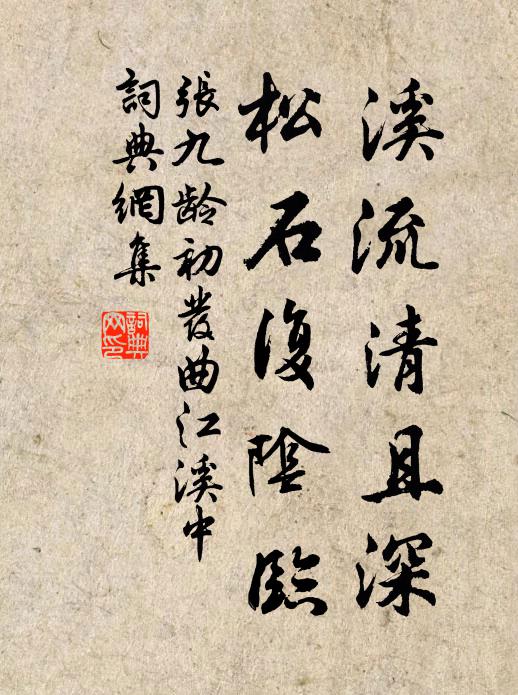 溪流清且深
松石復陰臨
張九齡初發曲江溪中
詞典網集
詞典網印